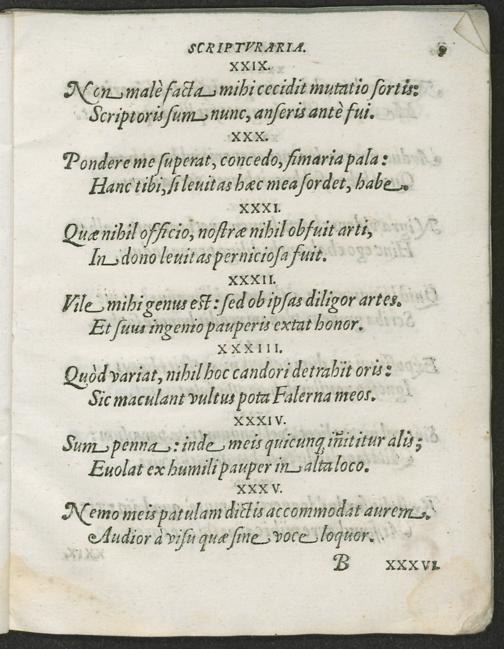 SCRIPTVRARIA. 9
XXIX.
Non malè facta mihi cecidit mutatio sortis:
Scriptoris sum nunc, anseris antè fui.
XXX.
Pondere me superat, concedo, fimaria pala:
Hanc tibi, si leuitas hæc mea sordet, habe.
XXXI.
Quæ nihil officio, nostræ nihil obfuit arti,
In dono leuitas perniciosa fuit.
XXXII.
Vile mihi genus est: sed ob ipsas diligor artes.
Et suus ingenio pauperis extat honor.
XXXIII.
Quòd variat, nihil hoc candori detrahit oris:
Sic maculant vultus pota Falerna meos.
XXXIV.
Sum penna: inde meis quicunq; inititur alis;
Euolat ex humili pauper in alta loco.
XXXV.
Nemo meis patulam dictis accommodat aurem.
Audior à visu quæ sine voce loquor.
B XXXVI.